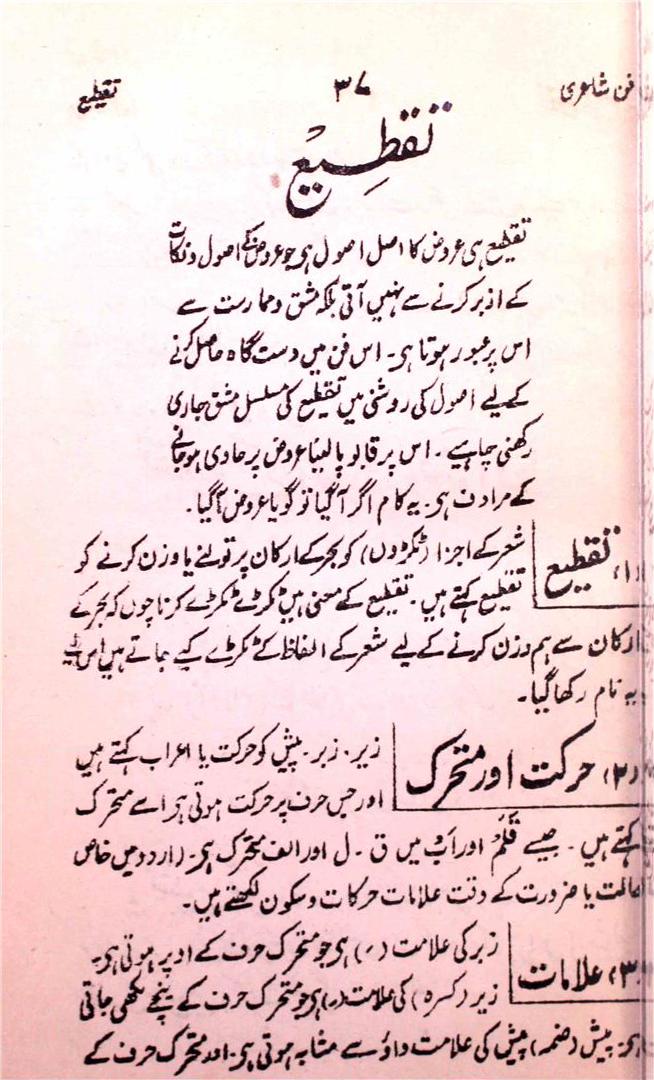 فن شاعری ۳۷ تقطیع
تقطیع
تقطیع ہی عروض کا اصل اصول ہی جو عروض کے اصول و نکات
کے ازبر کرنے سے نہیں آتی بلکہ مشق و ممارست سے
اس پر عبور ہوتا ہی۔ اس فن میں دست گاہ حاصل کرنے
کے لیے اصول کی روشنی میں تقطیع کی مسلسل مشق جاری
رکھنی چاہیے۔ اس پر قابو پا لینا عروض پر حاوی ہو جانے
کے مرادف ہی۔ یہ کام اگر آ گیا تو گویا عروض آ گیا۔
(۱) تقطیع شعر کے اجزا (ٹکڑوں) کو بحر کے ارکان پر تولنے یا وزن کرنے کو
تقطیع کہتے ہیں۔ تقطیع کے معنی ہیں ٹکڑے ٹکڑے کرنا چوں کہ بحر کے
ارکان سے ہم وزن کرنے کے لیے شعر کے الفاظ کے ٹکڑے کیے جاتے ہیں اس لیے
یہ نام رکھا گیا۔
(۲) حرکت اور متحرک زیر۔ زبر۔ پیش کو حرکت یا اعراب کہتے ہیں
اور جس حرف پر حرکت ہوتی ہی اسے متحرک
کہتے ہیں۔ جیسے قَلَمْ اور اَبْ میں ق۔ ل اور الف متحرک ہی۔ (اردو میں خاص
حالت یا ضرورت کے وقت علامات حرکات و سکون لکھتے ہیں۔
(۳) علامات زبر کی علامت (َ) ہی جو متحرک حرف کے اوپر ہوتی ہی۔
زیر (کسرہ) کی علامت (ِ) ہی جو متحرک حرف کے نیچے لکھی جاتی
ہی۔ پیش (ضمہ) پیش کی علامت واؤ سے مشابہ ہوتی ہی۔ اور متحرک حرف کے